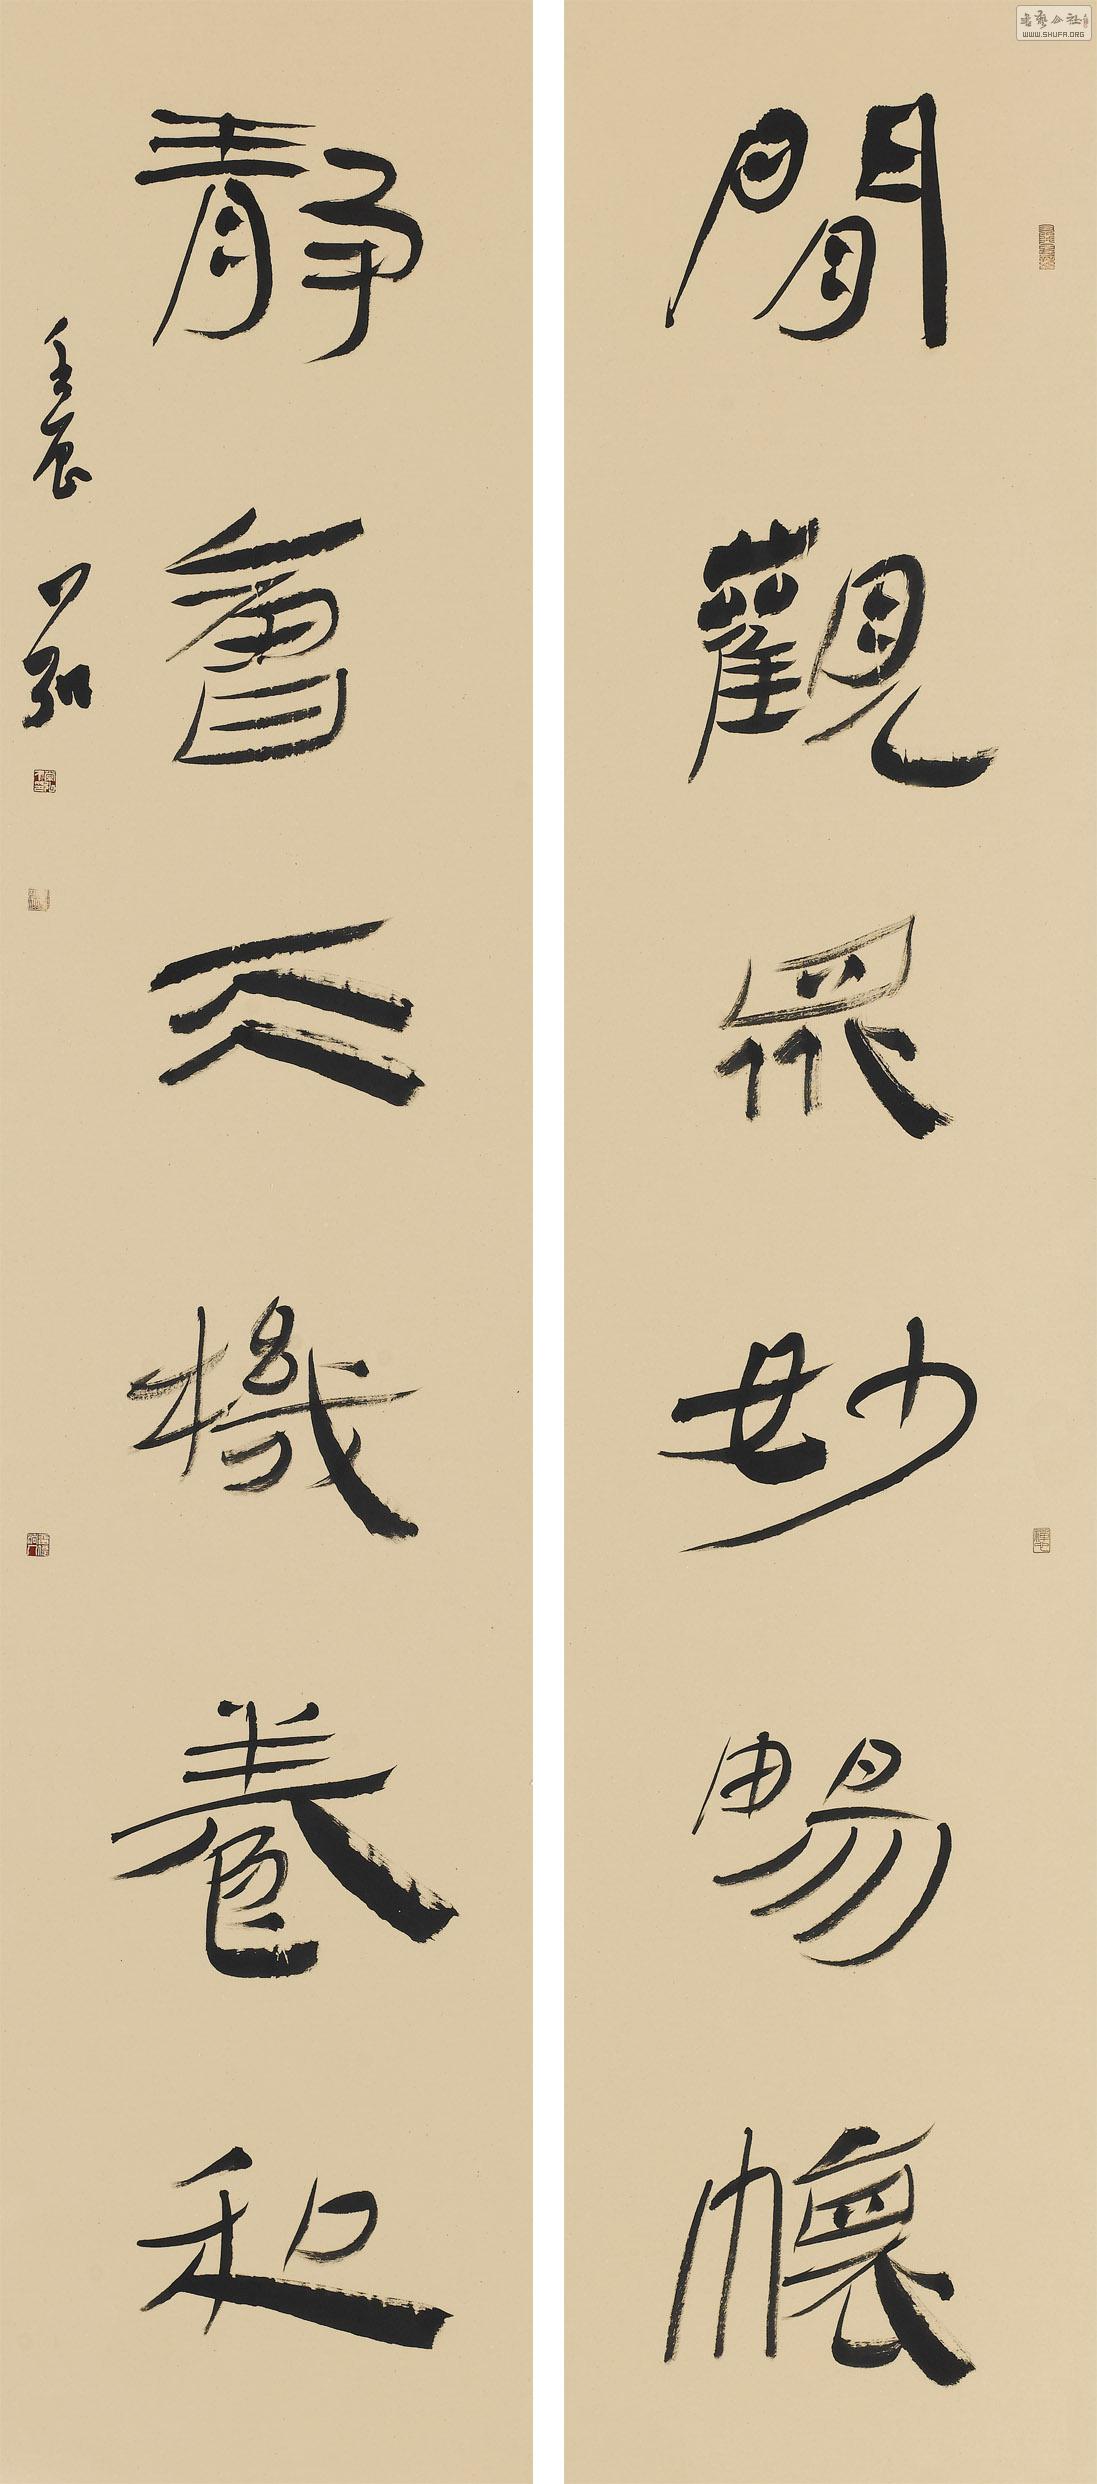 閒觀眾妙暢懷
靜會天機養和
壬辰
書藝公社
WWW.SHUFA.ORG